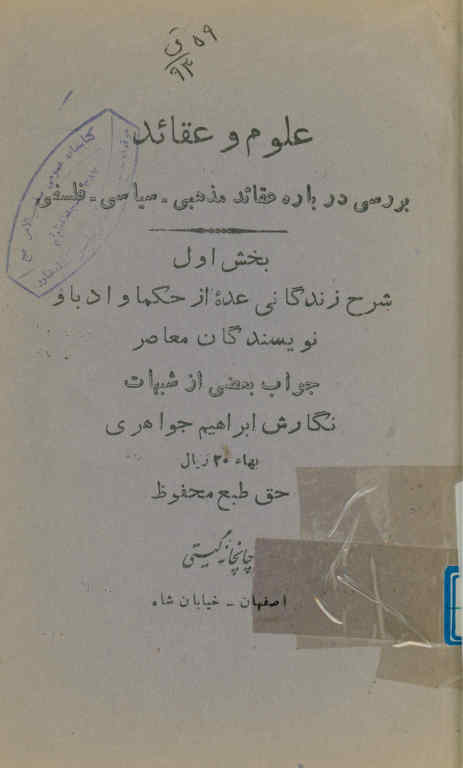 ۵۹
ق
۹۳
علوم و عقائد
بررسی در باره عقائد مذهبی ـ سیاسی ـ فلسفی
بخش اول
شرح زندگانی عدهٔ از حکما و ادبا و
نویسندگان معاصر
جواب بعضی از شبهات
نگارش ابراهیم جواهری
بهاء ۲۰ ریال
حق طبع محفوظ
چاپخانه گیتی
اصفهان ـ خیابان شاه
کتابخانه عمومی